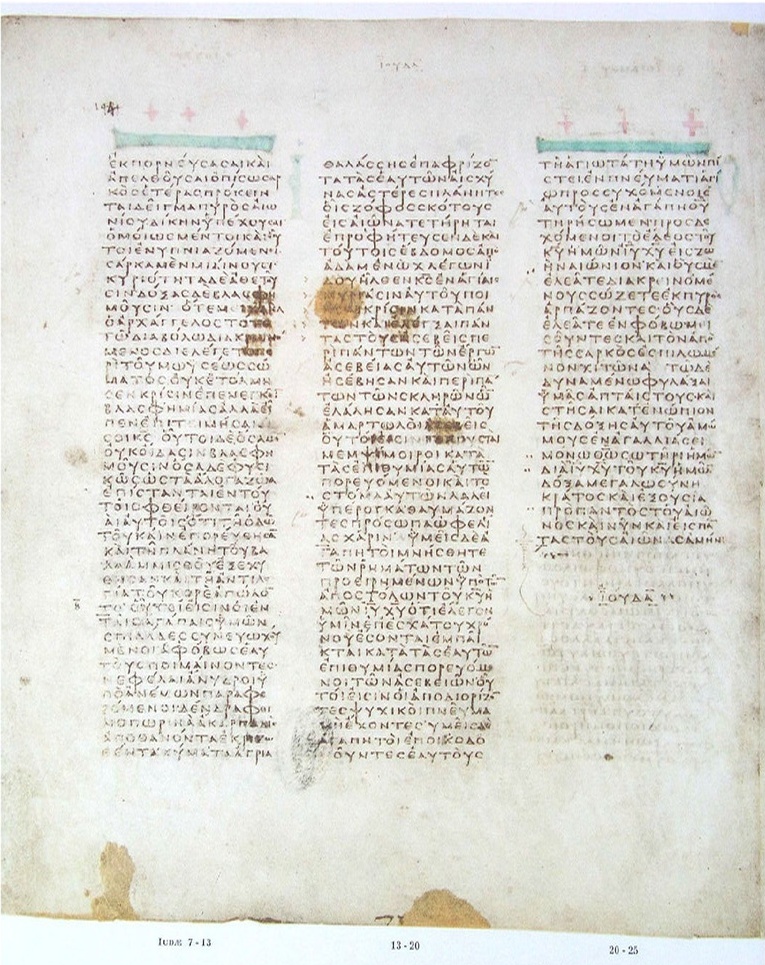 ΙΟΥΔΑ
ΕΚΠΟΡΝΕΥϹΑϹΑΙΚΑΙ
ΑΠΕΛΘΟΥϹΑΙΟΠΙϹΩϹΑΡ
ΚΟϹΕΤΕΡΑϹΠΡΟΚΕΙΝ
ΤΑΙΔΕΙΓΜΑΠΥΡΟϹΑΙΩ
ΝΙΟΥΔΙΚΗΝΥΠΕΧΟΥϹΑΙ
ΟΜΟΙΩϹΜΕΝΤΟΙΚΑΙΟΥ
ΤΟΙΕΝΥΠΝΙΑΖΟΜΕΝΟΙ
ϹΑΡΚΑΜΕΝΜΙΑΙΝΟΥϹΙ
ΚΥΡΙΟΤΗΤΑΔΕΑΘΕΤΟΥ
ϹΙΝΔΟΞΑϹΔΕΒΛΑϹΦΗ
ΜΟΥϹΙΝ ΟΤΕΜΙΧΑΗΛ
ΟΑΡΧΑΓΓΕΛΟϹΤΟΤΕ
ΤΩΔΙΑΒΟΛΩΔΙΑΚΡΙΝΟ
ΜΕΝΟϹΔΙΕΛΕΓΕΤΟΠΕ
ΡΙΤΟΥΜΩΥϹΕΩϹϹΩ
ΜΑΤΟϹΟΥΚΕΤΟΛΜΗ
ϹΕΝΚΡΙϹΙΝΕΠΕΝΕΓΚΕΙ
ΒΛΑϹΦΗΜΙΑϹΑΛΛΑΕΙ
ΠΕΝΕΠΙΤΕΙΜΗϹΑΙ
ϹΟΙΚϹ ΟΥΤΟΙΔΕΟϹΑΜΕ
ΟΥΚΟΙΔΑϹΙΝΒΛΑϹΦΗ
ΜΟΥϹΙΝΟϹΑΔΕΦΥϹΙ
ΚΩϹΩϹΤΑΑΛΟΓΑΖΩΑ
ΕΠΙϹΤΑΝΤΑΙΕΝΤΟΥ
ΤΟΙϹΦΘΕΙΡΟΝΤΑΙΟΥ
ΑΙΑΥΤΟΙϹΟΤΙΤΗΟΔΩ
ΤΟΥΚΑΙΝΕΠΟΡΕΥΘΗϹΑ
ΚΑΙΤΗΠΛΑΝΗΤΟΥΒΑ
ΛΑΑΜΜΙϹΘΟΥΕΞΕΧΥ
ΘΗϹΑΝΚΑΙΤΗΑΝΤΙΛΟ
ΓΙΑΤΟΥΚΟΡΕΑΠΩΛΟ
ΤΟ ΟΥΤΟΙΕΙϹΙΝΟΙΕΝ
ΤΑΙϹΑΓΑΠΑΙϹΥΜΩΝ
ϹΠΙΛΑΔΕϹϹΥΝΕΥΩΧΟΥ
ΜΕΝΟΙΑΦΟΒΩϹΕΑΥ
ΤΟΥϹΠΟΙΜΑΙΝΟΝΤΕϹ
ΝΕΦΕΛΑΙΑΝΥΔΡΟΙΥ
ΠΟΑΝΕΜΩΝΠΑΡΑΦΕ
ΡΟΜΕΝΑΙΔΕΝΔΡΑΦΘΙ
ΝΟΠΩΡΙΝΑΑΚΑΡΠΑΔΙϹ
ΑΠΟΘΑΝΟΝΤΑΕΚΡΙΖΩ
ΘΕΝΤΑΚΥΜΑΤΑΑΓΡΙΑ
ΘΑΛΑϹϹΗϹΕΠΑΦΡΙΖΟ
ΤΑΤΑϹΕΑΥΤΩΝΑΙϹΧΥ
ΝΑϹΑϹΤΕΡΕϹΠΛΑΝΗΤΕϹ
ΟΙϹΖΟΦΟϹϹΚΟΤΟΥϹ
ΕΙϹΑΙΩΝΑΤΕΤΗΡΗΤΑΙ
ΕΠΡΟΦΗΤΕΥϹΕΝΔΕΚΑΙ
ΤΟΥΤΟΙϹΕΒΔΟΜΟϹΑΠ
ΑΔΑΜΕΝΩΧΛΕΓΩΝΙ
ΔΟΥΗΛΘΕΝΚϹΕΝΑΓΙΑΙϹ
ΜΥΡΙΑϹΙΝΑΥΤΟΥΠΟΙ
ΗϹΑΙΚΡΙϹΙΝΚΑΤΑΠΑΝ
ΤΩΝΚΑΙΕΛΕΓΞΑΙΠΑΝ
ΤΑϹΤΟΥϹΑϹΕΒΕΙϹΠΕ
ΡΙΠΑΝΤΩΝΤΩΝΕΡΓΩ
ΑϹΕΒΕΙΑϹΑΥΤΩΝΩΝ
ΗϹΕΒΗϹΑΝΚΑΙΠΕΡΙΠΑ
ΤΩΝΤΩΝϹΚΛΗΡΩΝΩ
ΕΛΑΛΗϹΑΝΚΑΤΑΥΤΟΥ
ΑΜΑΡΤΩΛΟΙΑϹΕΒΕΙϹ
ΟΥΤΟΙΕΙϹΙΝΓΟΓΓΥϹΤΑΙ
ΜΕΜΨΙΜΟΙΡΟΙΚΑΤΑ
ΤΑϹΕΠΙΘΥΜΙΑϹΑΥΤΩ
ΠΟΡΕΥΟΜΕΝΟΙΚΑΙΤΟ
ϹΤΟΜΑΑΥΤΩΝΛΑΛΕΙ
ΥΠΕΡΟΓΚΑΘΑΥΜΑΖΟΝ
ΤΕϹΠΡΟϹΩΠΑΩΦΕΛΙ
ΑϹΧΑΡΙΝ ΥΜΕΙϹΔΕΑ
ΓΑΠΗΤΟΙΜΝΗϹΘΗΤΕ
ΤΩΝΡΗΜΑΤΩΝΤΩΝ
ΠΡΟΕΙΡΗΜΕΝΩΝΥΠΟΤΩ
ΑΠΟϹΤΟΛΩΝΤΟΥΚΥΗ
ΜΩΝΙΥΧΥΟΤΙΕΛΕΓΟΝ
ΥΜΙΝΕΠΕϹΧΑΤΟΥΧΡΟ
ΝΟΥΕϹΟΝΤΑΙΕΜΠΑΙ
ΚΤΑΙΚΑΤΑΤΑϹΕΑΥΤΩ
ΕΠΙΘΥΜΙΑϹΠΟΡΕΥΟΜΕ
ΝΟΙΤΩΝΑϹΕΒΕΙΩΝΟΥ
ΤΟΙΕΙϹΙΝΟΙΑΠΟΔΙΟΡΙΖΟ
ΤΕϹΨΥΧΙΚΟΙΠΝΕΥΜΑ
ΜΗΕΧΟΝΤΕϹΥΜΕΙϹΔΕ
ΑΓΑΠΗΤΟΙΕΠΟΙΚΟΔΟ
ΜΟΥΝΤΕϹΕΑΥΤΟΥϹ
ΤΗΑΓΙΩΤΑΤΗΥΜΩΝΠΙ
ϹΤΕΙΕΝΠΝΕΥΜΑΤΙΑΓΙ
ΩΠΡΟϹΕΥΧΟΜΕΝΟΙΕ
ΑΥΤΟΥϹΕΝΑΓΑΠΗΘΥ
ΤΗΡΗϹΩΜΕΝΠΡΟϹΔΕ
ΧΟΜΕΝΟΙΤΟΕΛΕΟϹΤΟΥ
ΚΥΗΜΩΝΙΥΧΥΕΙϹΖΩ
ΗΝΑΙΩΝΙΟΝΚΑΙΟΥϹΜΕ
ΕΛΕΑΤΕΔΙΑΚΡΙΝΟΜΕ
ΝΟΥϹϹΩΖΕΤΕΕΚΠΥΡΟϹ
ΑΡΠΑΖΟΝΤΕϹΟΥϹΔΕ
ΕΛΕΑΤΕΕΝΦΟΒΩΜΙ
ϹΟΥΝΤΕϹΚΑΙΤΟΝΑΠΟ
ΤΗϹϹΑΡΚΟϹΕϹΠΙΛΩΜΕ
ΝΟΝΧΙΤΩΝΑ ΤΩΔΕ
ΔΥΝΑΜΕΝΩΦΥΛΑΞΑΙ
ΥΜΑϹΑΠΤΑΙϹΤΟΥϹΚΑΙ
ϹΤΗϹΑΙΚΑΤΕΝΩΠΙΟΝ
ΤΗϹΔΟΞΗϹΑΥΤΟΥΑΜΩ
ΜΟΥϹΕΝΑΓΑΛΛΙΑϹΕΙ
ΜΟΝΩΘΩϹΩΤΗΡΙΗΜΩ
ΔΙΑΙΥΧΥΤΟΥΚΥΗΜΩ
ΔΟΞΑΜΕΓΑΛΩϹΥΝΗ
ΚΡΑΤΟϹΚΑΙΕΞΟΥϹΙΑ
ΠΡΟΠΑΝΤΟϹΤΟΥΑΙΩ
ΝΟϹΚΑΙΝΥΝΚΑΙΕΙϹΠΑ
ΤΑϹΤΟΥϹΑΙΩΝΑϹΑΜΗΝ
ΙΟΥΔΑ
IUDÆ 7-13
13-20
20-25